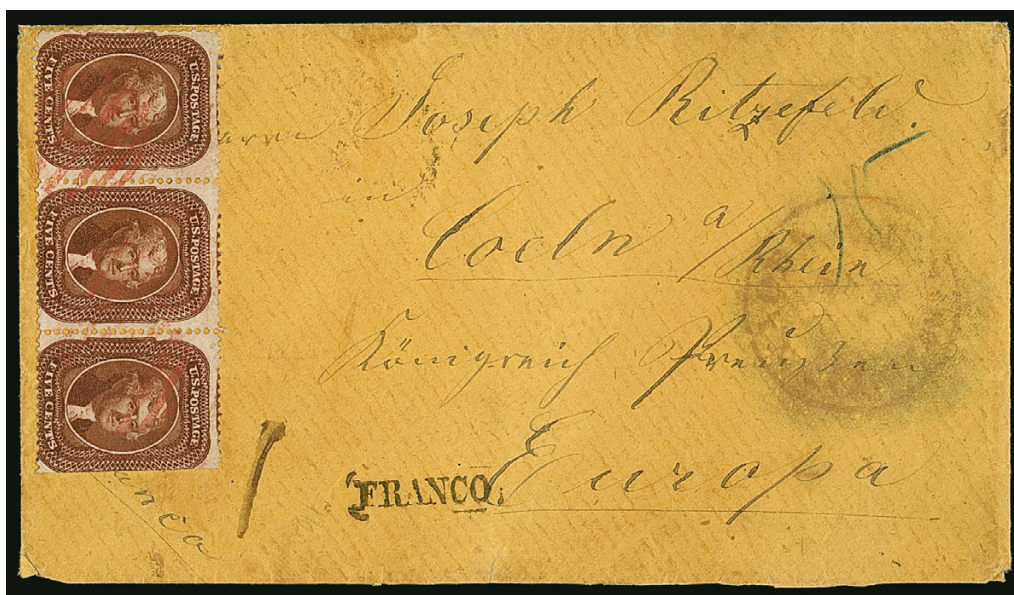 U.S. POSTAGE
FIVE CENTS
U.S. POSTAGE
FIVE CENTS
U.S. POSTAGE
FIVE CENTS
Joseph Ritzefeld.
in
Coeln a/Rhein
Königreich Preußen
Europa
FRANCO.